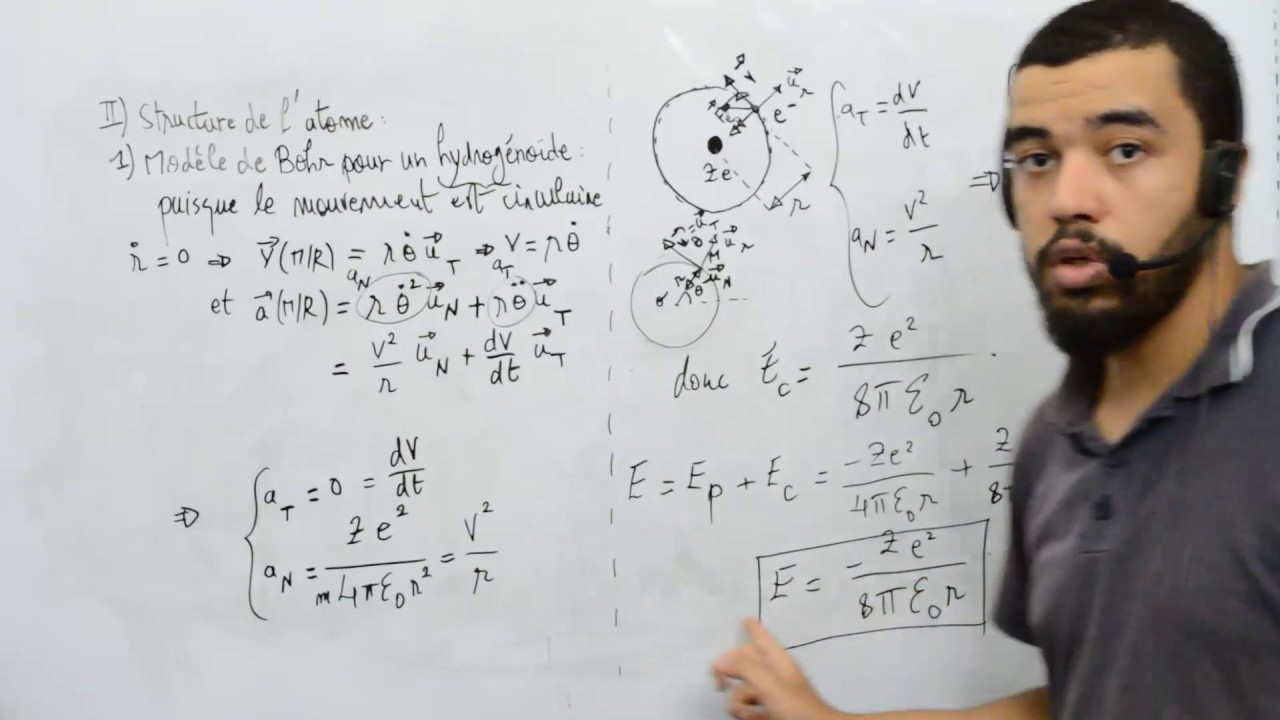 II) Structure de l'atome:
1) Modèle de Bohr pour un hydrogénoïde:
puisque le mouvement est circulaire
ṙ = 0 ⇒ V⃗(M/R) = r θ̇ u⃗_T ⇒ V = r θ̇
a_N a_T
et a⃗(M/R) = r θ̇² u⃗_N + r θ̈ u⃗_T
= V²/r u⃗_N + dV/dt u⃗_T
⇒ { a_T = 0 = dV/dt
a_N = Z e²/(m 4π ε₀ r²) = V²/r
u⃗_r
e⁻
Ze
r
{ a_T = dV/dt
a_N = V²/r
⇒
u⃗_T
u⃗_r
M
u⃗_N
θ
donc E_c = Z e²/(8π ε₀ r).
E = E_p + E_c = -Ze²/(4π ε₀ r) + Z/8π
E = -Z e²/(8π ε₀ r)